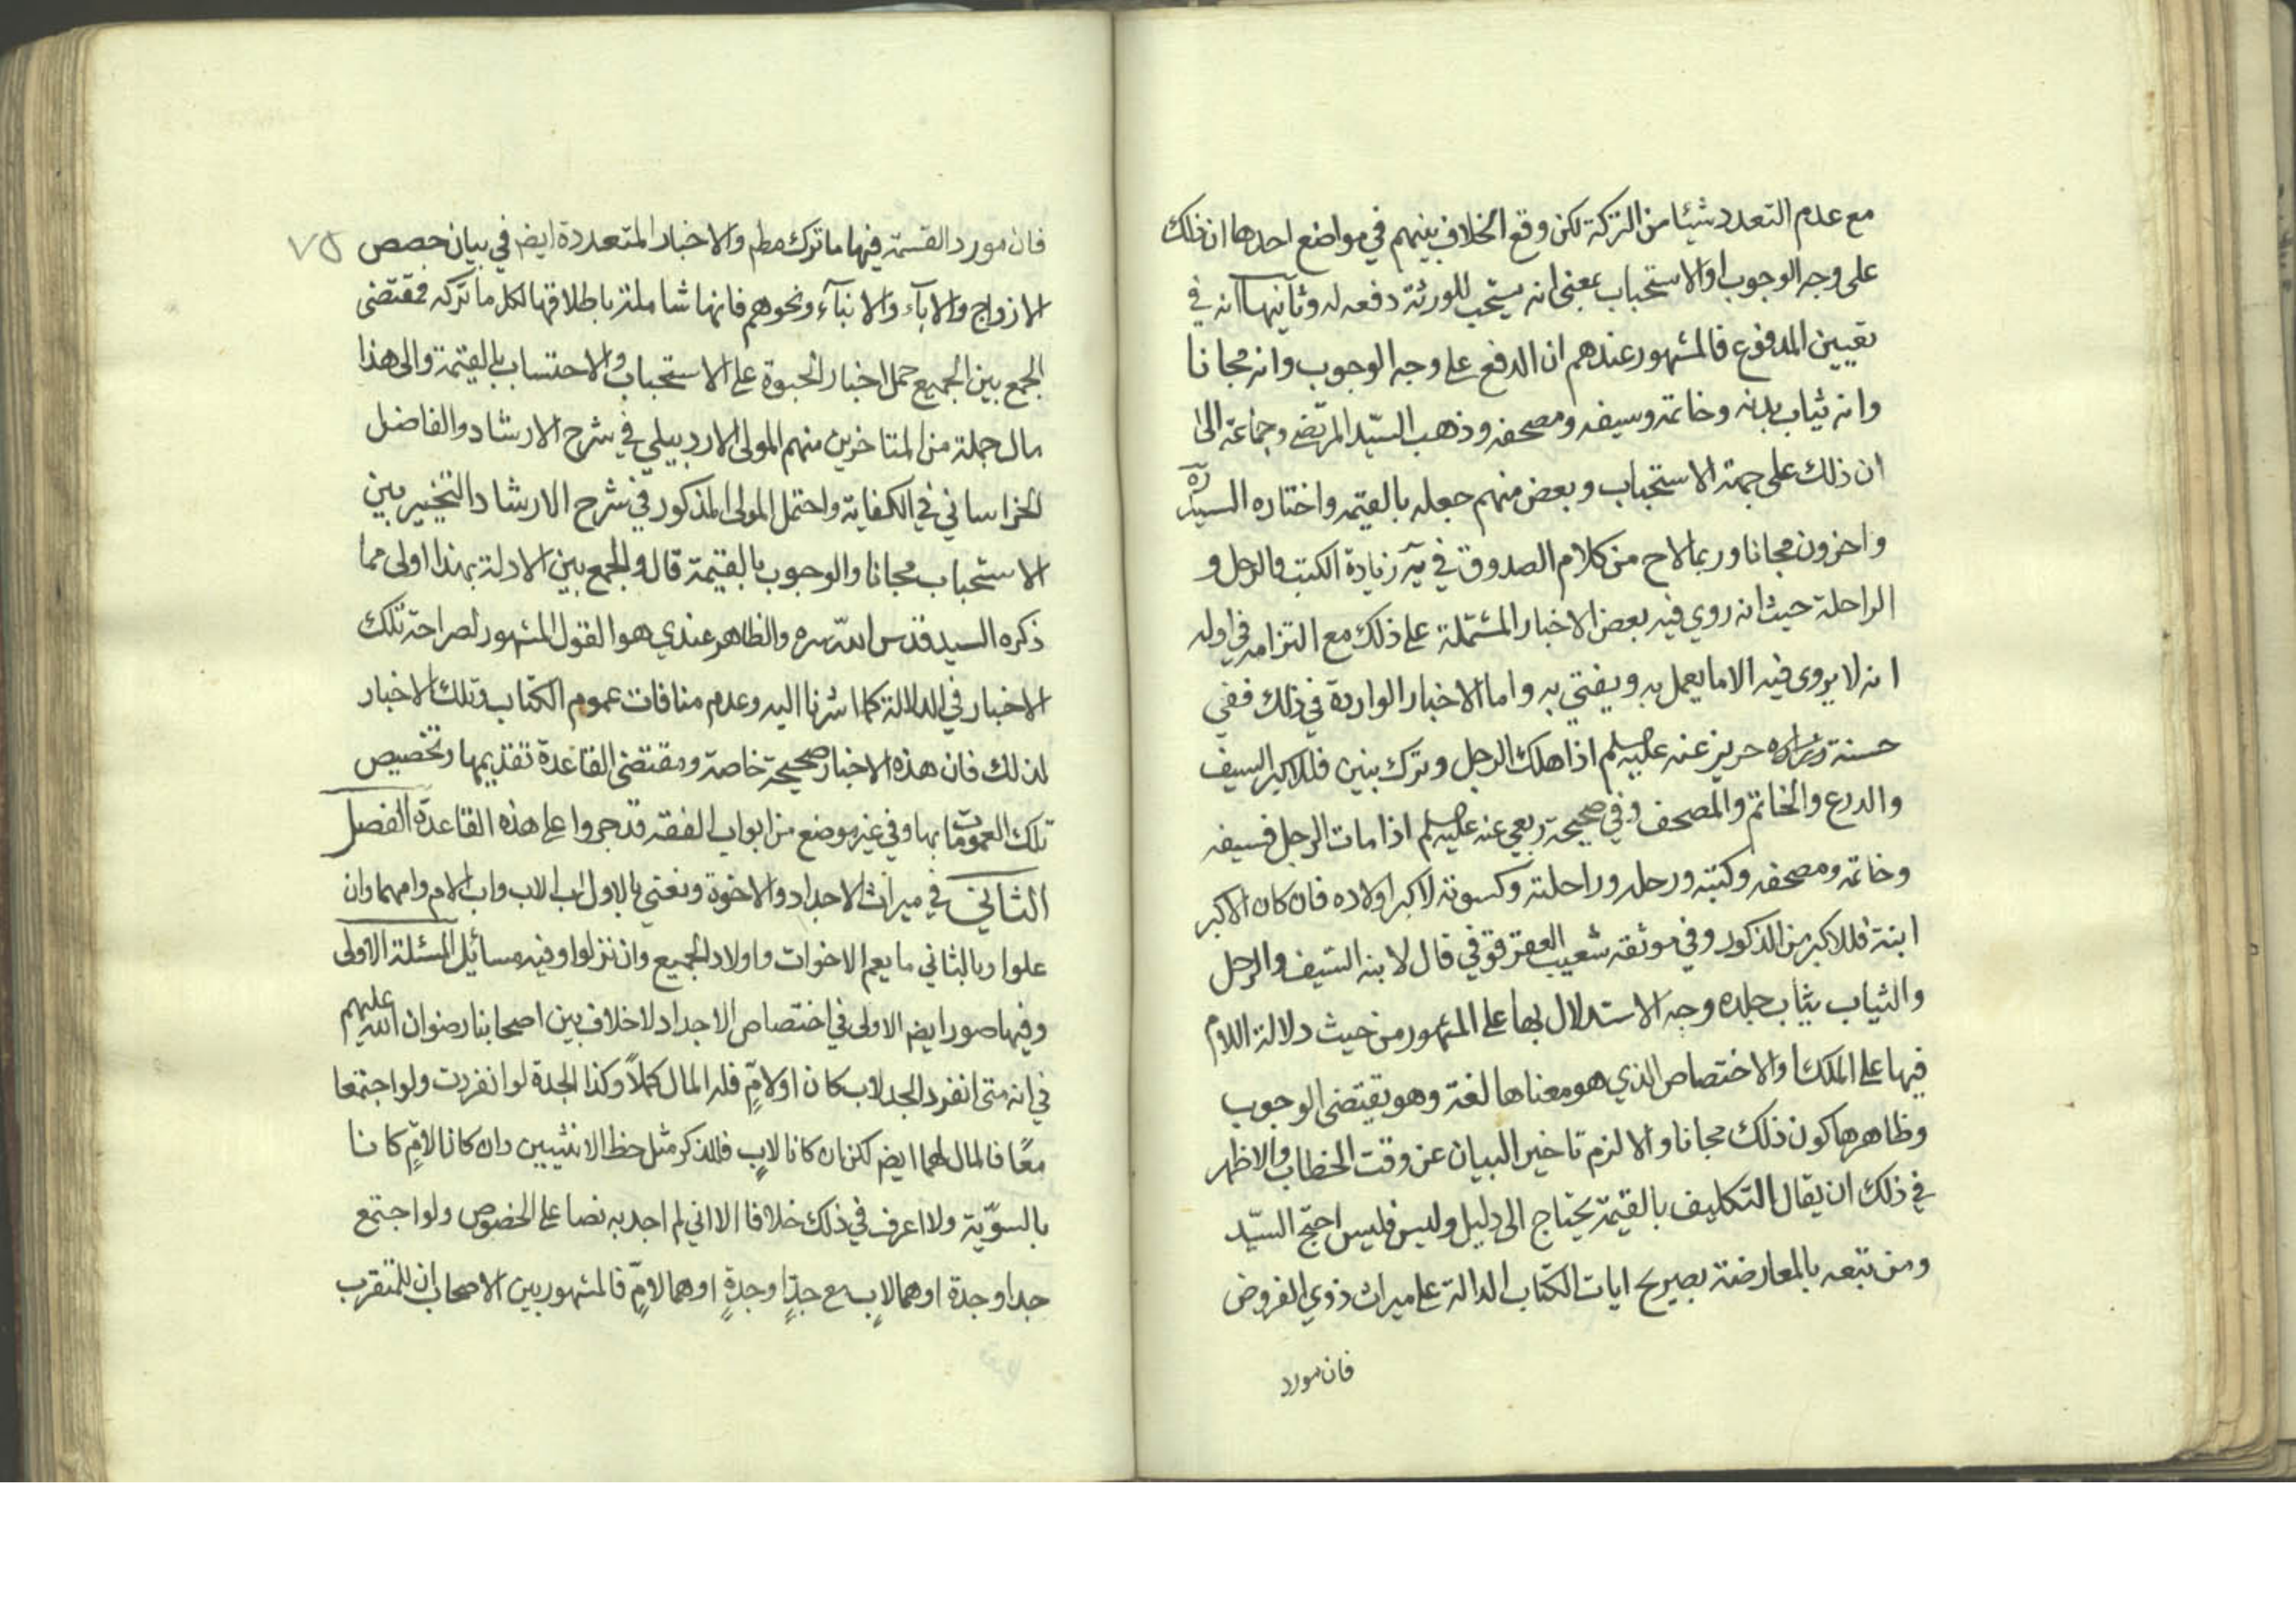 مع عدم التعدد شيئا من التركة لكن وقع الخلاف بينهم في مواضع احدها ان ذلك
على وجه الوجوب او الاستحباب بمعنى انه يستحب للورثة دفعه له وثانيها انه في
تعيين المدفوع فالمشهور عندهم ان الدفع على وجه الوجوب وانه مجانا
وانه ثياب بدنه وخاتمه وسيفه ومصحفه وذهب السيّد المرتضى وجماعة الى
ان ذلك على جهة الاستحباب وبعض منهم جعله بالقيمه واختاره السيد ره
واخرون مجانا وربما لاح من كلام الصدوق في يه زيادة الكتب والرحل و
الراحلة حيث انه روي فيه بعض الاخبار المشتملة على ذلك مع التزامه في اوله
انه لا يروى فيه الا ما يعمل به ويفتي به واما الاخبار الواردة في ذلك ففي
حسنة حريز عنه عليه السلام اذا هلك الرجل وترك بنين فللاكبر السيف
والدرع والخاتم والمصحف وفي صحيحة ربعي عنه عليه السلام اذا مات الرجل فسيفه
وخاتمه ومصحفه وكتبه ورحله وراحلته وكسوته لاكبر اولاده فان كان الاكبر
ابنة فللاكبر من الذكور وفي موثقه شعيب العقرقوفي قال لابنه السّيف والرحل
والثياب ثياب جلده وجه الاستدلال بها على المشهور من حيث دلالة اللام
فيها على الملك او الاختصاص الذي هو معناها لغة وهو يقتضى الوجوب
وظاهرها كون ذلك مجانا والا لزم تاخير البيان عن وقت الخطاب والاظهر
في ذلك ان يقال التكليف بالقيمة يحتاج الى دليل وليس فليس احتج السيّد
ومن تبعه بالمعارضة بصريح ايات الكتاب الدالة على ميراث ذوي الفروض
فان مورد
٧٥
فان مورد القسمة فيها ما ترك مطم والاخبار المتعددة ايضم في بيان حصص
الازواج والاباء والابنآء ونحوهم فانها شاملة باطلاقها لكل ما تركه فمقتضى
الجمع بين الجميع حمل اخبار الحبوة على الاستحباب والاحتساب بالقيمة والى هذا
مال جملة من المتاخرين منهم المولى الاردبيلي في شرح الارشاد والفاضل
الخراساني في الكفاية واحتمل المولى المذكور في شرح الارشاد التخيير بين
الاستحباب مجانا والوجوب بالقيمة قال والجمع بين الادلة بهذا اولى مما
ذكره السيد قدس الله سره والظاهر عندي هو القول المشهور لصراحة تلك
الاخبار في الدلالة كما اشرنا اليه وعدم منافات عموم الكتاب وتلك الاخبار
لذلك فان هذه الاخبار صحيحة خاصة ومقتضى القاعدة تقديمها وتخصيص
تلك العمومات بها وفي غير موضع من ابواب الفقه قد جروا على هذه القاعدة الفصل
الثاني في ميراث الاجداد والاخوة ونعني بالاول اب الاب واب الام وامهما وان
علوا وبالثاني ما يعم الاخوات واولاد الجميع وان نزلوا وفيه مسائل المسئلة الاولى
وفيها صور ايضم الاولى في اختصاص الاجداد لا خلاف بين اصحابنا رضوان الله عليهم
في انه متى انفرد الجد لاب كان او لامٍّ فله المال كملاً وكذا الجدة لو انفردت ولو اجتمعا
معًا فالمال لهما ايضم لكن ان كانا لابٍ فللذكر مثل حظ الانثيين وان كانا لامٍّ كانا
بالسوّية ولا اعرف في ذلك خلافا الا اني لم اجد به نصا على الخصوص ولو اجتمع
جد او جدة او هما لابٍ مع جدٍّ او جدةٍ او هما لامٍّ فالمشهور بين الاصحاب ان للمتقرب